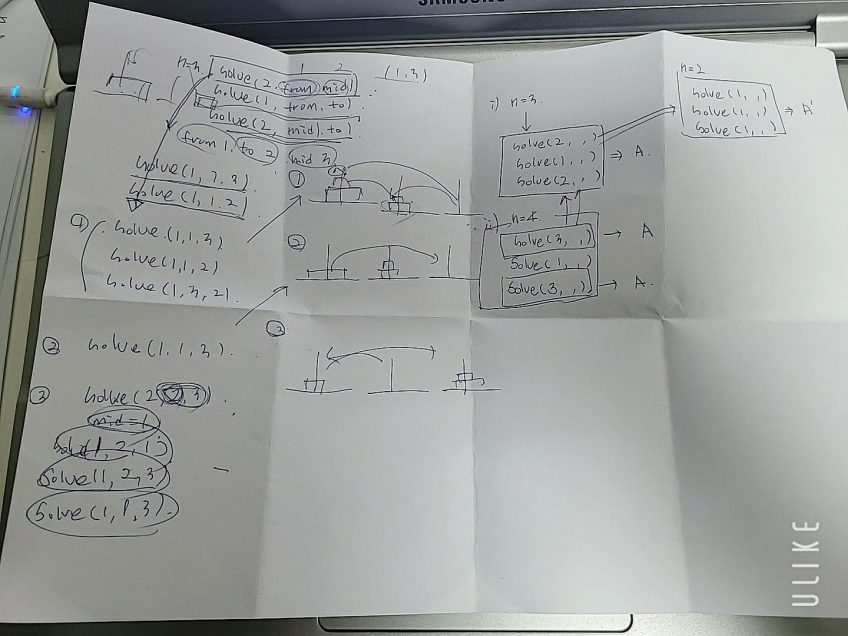 SAMSUNG
n=3
1 2
solve(2, from, mid)
(1,3)
solve(1, from, to)
solve(2, mid, to)
from 1, to 2, mid 3
solve(1, 1, 2)
①
solve(1,1,3)
solve(1,1,2)
solve(1,3,2)
② solve(1,1,3).
③ solve(2,2,3)
mid=1
solve(1,2,1)
solve(1,2,3)
solve(1,1,3).
①
②
③
i) n=3.
solve(2, , )
solve(1, , ) ⇒ A.
solve(2, , )
n=4.
solve(3, , ) → A
solve(1, , )
solve(3, , ) → A.
n=2
solve(1, , )
solve(1, , ) ⇒ A'
solve(1, , )
ULIKE